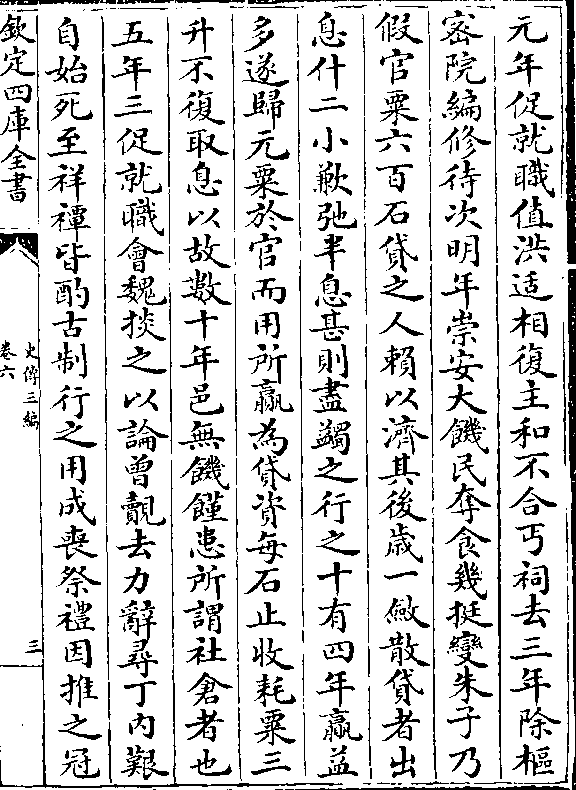 元年促就職值洪适相復主和不合丐祠去三年除樞
密院編修待次明年崇安大饑民奪食幾挺變朱子乃
假官粟六百石貸之人賴以濟其後歲一斂散貸者出
息什二小歉弛半息甚則盡蠲之行之十有四年贏益
多遂歸元粟於官而用所贏為貸資每石止收耗粟三
升不復取息以故數十年邑無饑饉患所謂社倉者也
五年三促就職會魏掞之以論曾覿去力辭尋丁內艱
自始死至祥禫皆酌古制行之用成喪祭禮因推之冠
欽定四庫全書
史傳三編
卷六
三